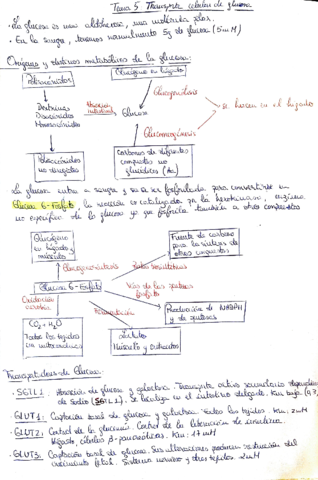 Tema 5. Transporte celular de glucosa
· La glucosa es una aldohexosa, una molécula polar.
· En la sangre, tenemos normalmente 5g de glucosa (5mM)
Orígenes y destinos metabólicos de la glucosa:
Polisacáridos
Glucógeno en hígado
Glucogenolisis
Dextrinas
Disacáridos
Monosacáridos
Absorción
intestinal
Glucosa
se hacen en el hígado
Gluconeogénesis
Polisacáridos
no digeridos
Carbonos de diferentes
compuestos no
glucídicos (Aa)
La glucosa entra a sangre y va a ser fosforilada para convertirse en
Glucosa 6-Fosfato, la reacción es catalizada por la hexoquinasa, enzima
no específico de la glucosa ya que fosforila también a otros compuestos
Glucógeno
en hígado y
músculo
Fuente de carbono
para la síntesis de
otros compuestos
Glucogenogénesis
Rutas biosintéticas
Glucosa 6-Fosfato
Vía de las pentosas
fosfato
Oxidación
aerobia
Fermentación
Producción de NADPH
y de pentosas
CO2 + H2O
Todos los tejidos
con mitocondrias
Lactato
Músculo y eritrocitos
Transportadores de Glucosa:
- SGTL1: Absorción de glucosa y galactosa. Transporte activo secundario dependiente
de Sodio (SGTL1). Se localiza en el intestino delgado. Km baja (0,7,
- GLUT1: Captación basal de glucosa y galactosa. Todos los tejidos. Km: 2mM
- GLUT2: Control de la glucemia. Control de la liberación de insulina.
Hígado, células β-pancreáticas. Km: 17mM
- GLUT3: Captación basal de glucosa. Sus alteraciones producen restricción del
crecimiento fetal. Sistema nervioso y otros tejidos. 2mM